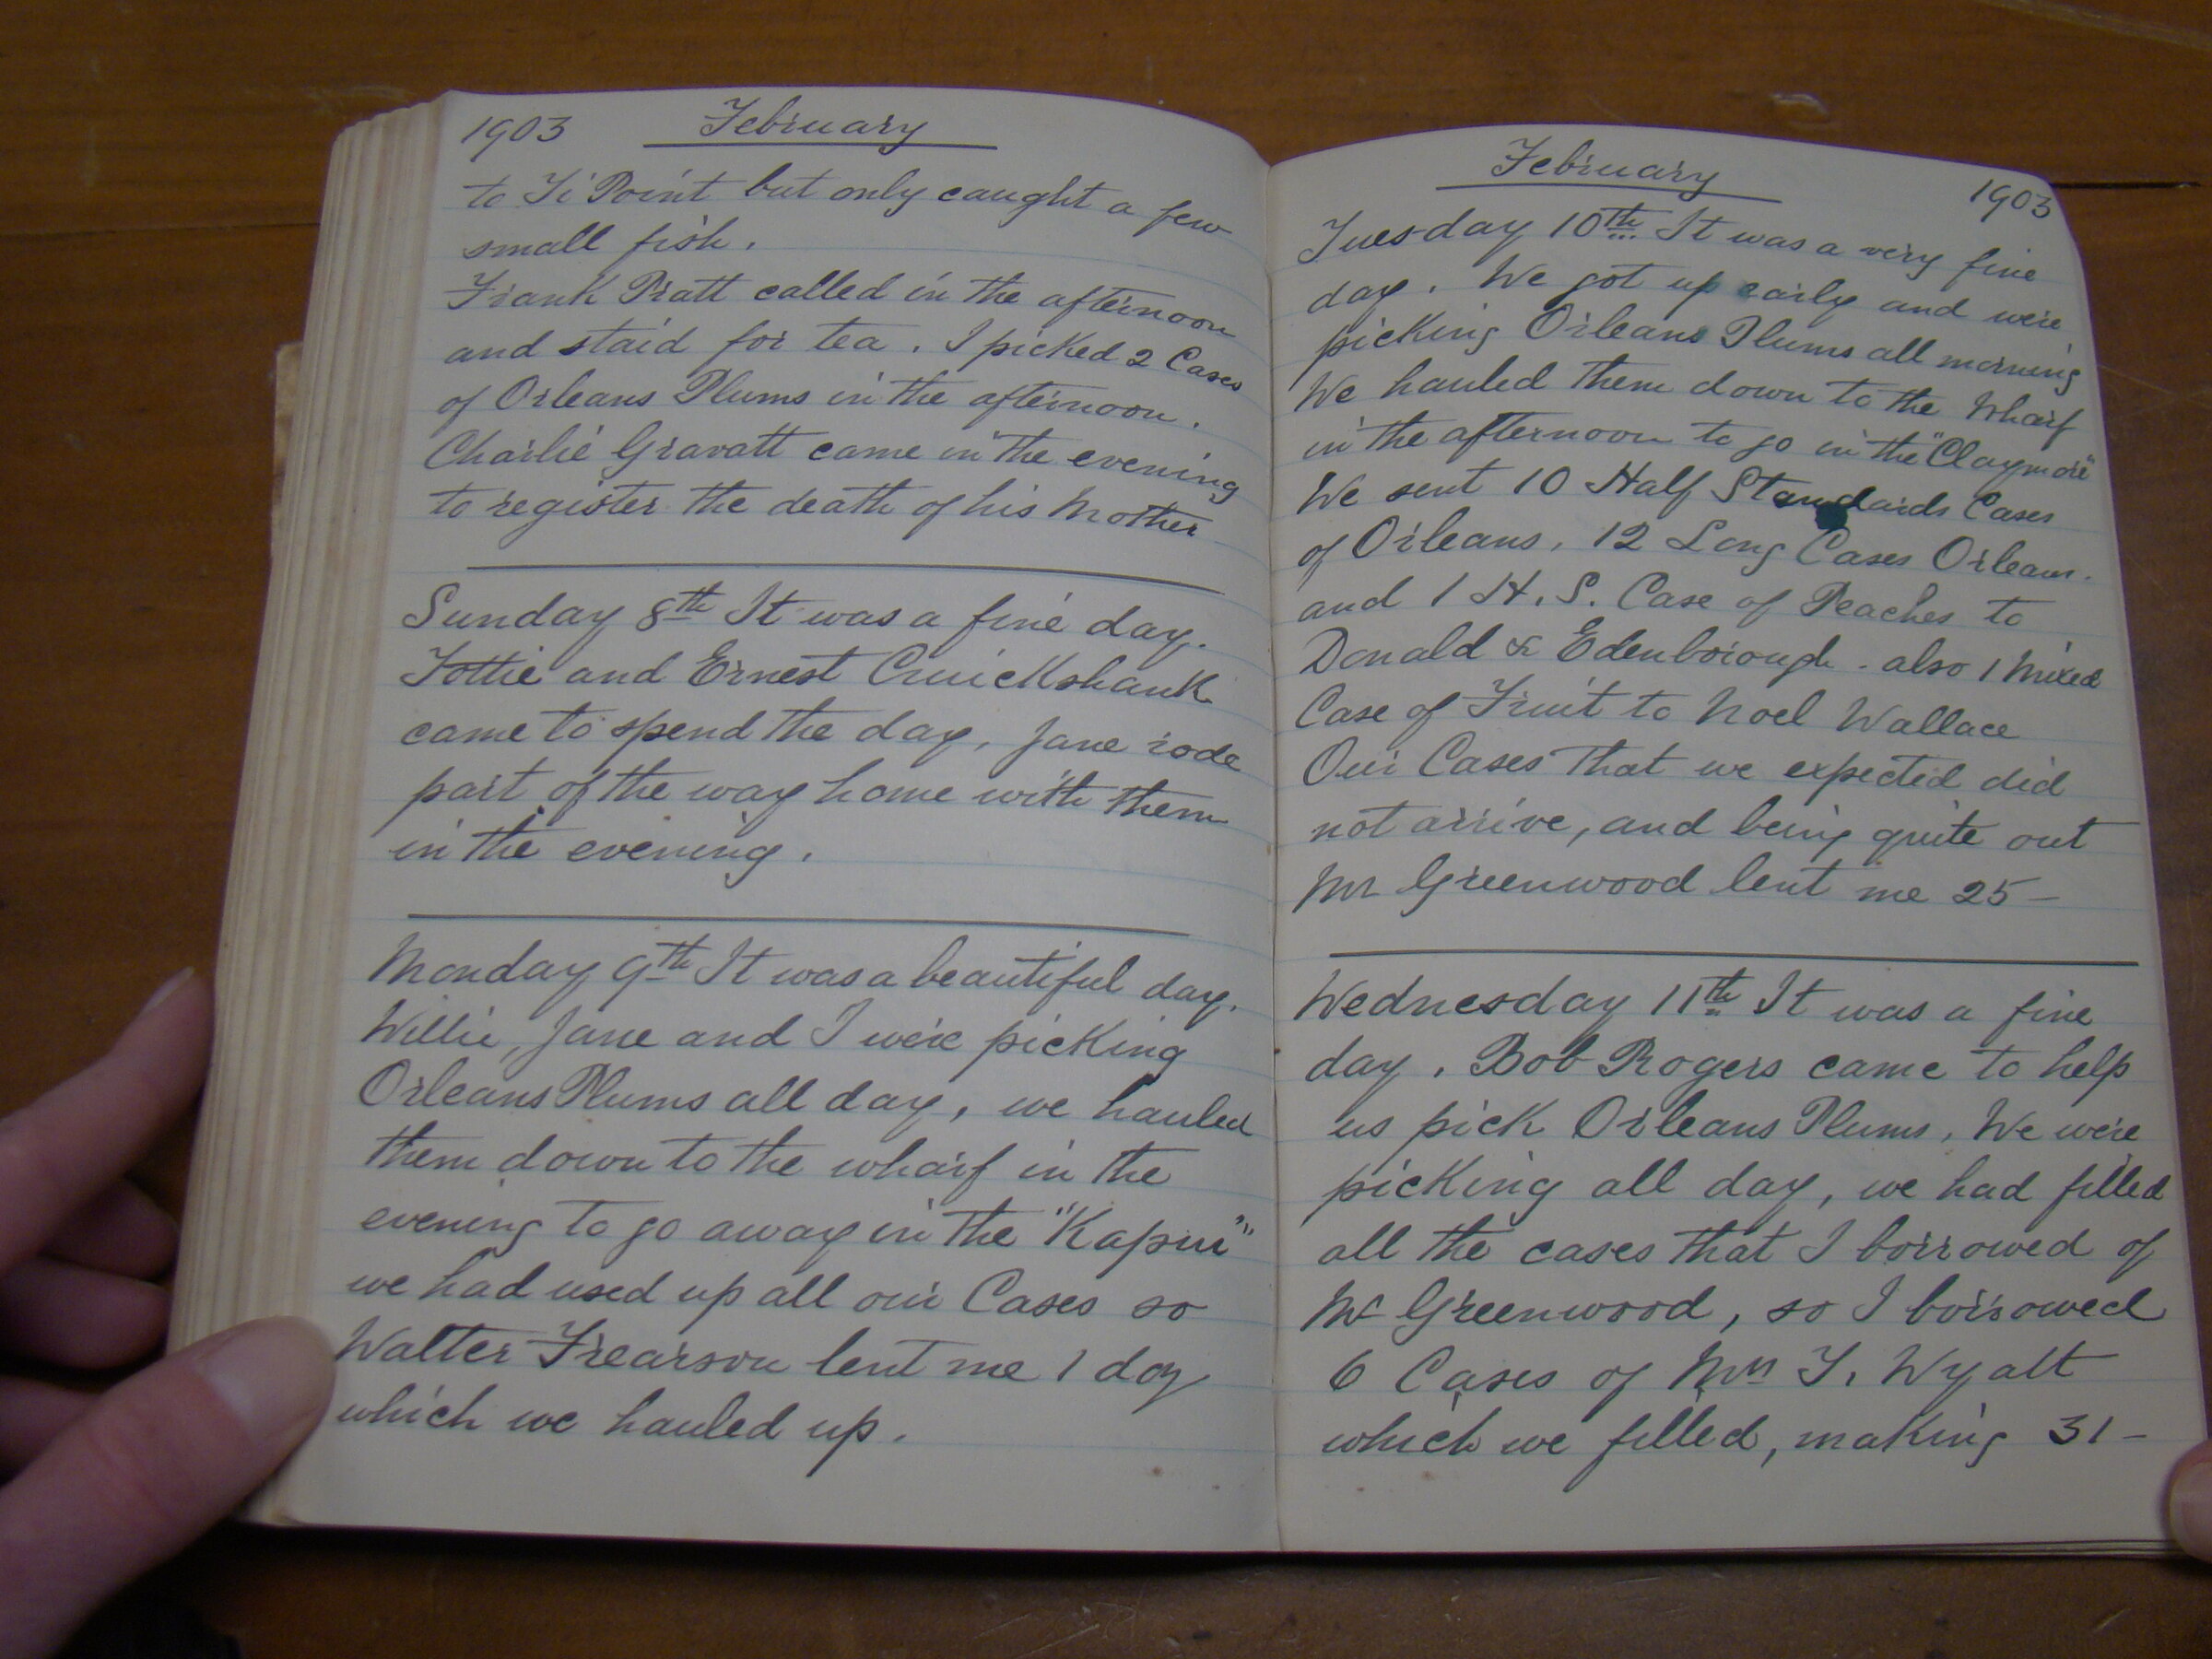 1903 February
to Ti Point but only caught a few
small fish.
Frank Pratt called in the afternoon
and staid for tea. I picked 2 Cases
of Orleans Plums in the afternoon.
Charlie Gravatt came in the evening
to register the death of his Mother
Sunday 8th It was a fine day.
Tottie and Ernest Cruickshank
came to spend the day, Jane rode
part of the way home with them
in the evening.
Monday 9th It was a beautiful day.
Willie, Jane and I were picking
Orleans Plums all day, we hauled
them down to the wharf in the
evening to go away in the "Kapui"
we had used up all our Cases so
Walter Frearson lent me 1 doz
which we hauled up.
February 1903
Tuesday 10th It was a very fine
day. We got up early and were
picking Orleans Plums all morning
We hauled them down to the Wharf
in the afternoon to go in the "Claymore"
We sent 10 Half Standards Cases
of Orleans, 12 Long Cases Orleans.
and 1 H.S. Case of Peaches to
Donald & Edenborough. also 1 Mixed
Case of Fruit to Noel Wallace
Our Cases that we expected did
not arrive, and being quite out
Mr Greenwood lent me 25 -
Wednesday 11th It was a fine
day. Bob Rogers came to help
us pick Orleans Plums. We were
picking all day, we had filled
all the cases that I borrowed of
Mr Greenwood, so I borrowed
6 Cases of Mrs T. Wyatt
which we filled, making 31 -